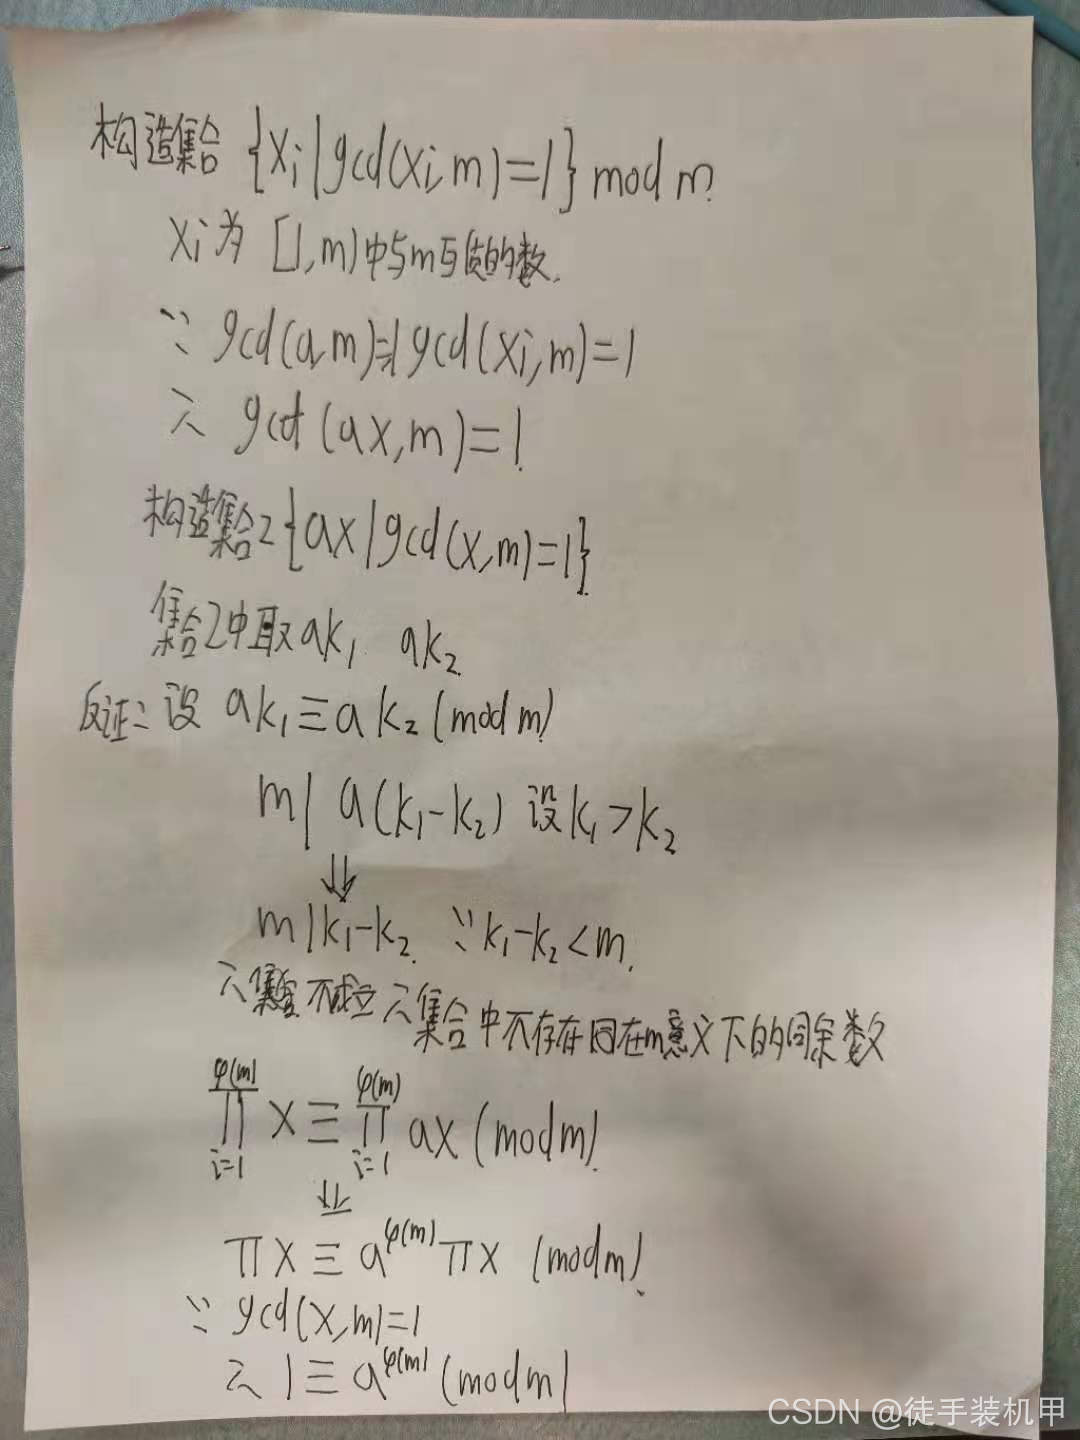 构造集合 {xi | gcd(xi, m) = 1} mod m.
xi为 [1, m) 中与m互质的数.
∵ gcd(a, m)=1 gcd(xi, m)=1
∴ gcd(ax, m)=1.
构造集合2 {ax | gcd(x, m)=1}.
集合2中取 ak₁ ak₂.
反证: 设 ak₁ ≡ ak₂ (mod m)
m | a(k₁-k₂) 设k₁>k₂
⇓
m | k₁-k₂. ∵ k₁-k₂<m.
∴ 不成立 ∴集合中不存在同在m意义下的同余数
∏_{i=1}^{φ(m)} x ≡ ∏_{i=1}^{φ(m)} ax (mod m).
⇓
πx ≡ a^{φ(m)} πx (mod m).
∵ gcd(x, m)=1
∴ 1 ≡ a^{φ(m)} (mod m)
CSDN @徒手装机甲